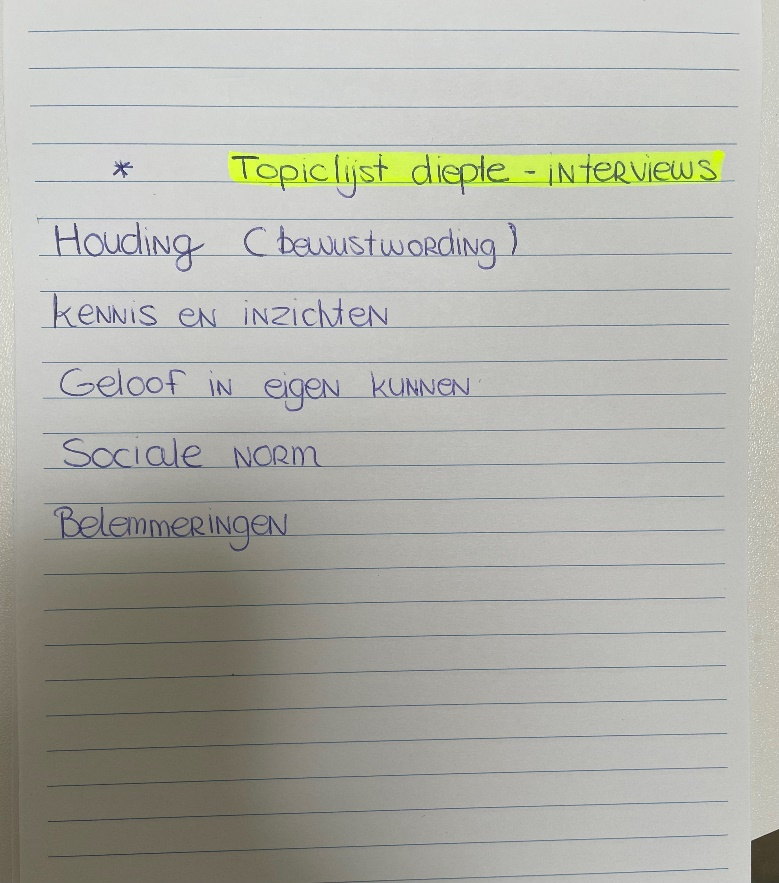 * Topiclijst diepte - interviews
Houding (bewustwording)
kennis en inzichten
Geloof in eigen kunnen
Sociale norm
Belemmeringen